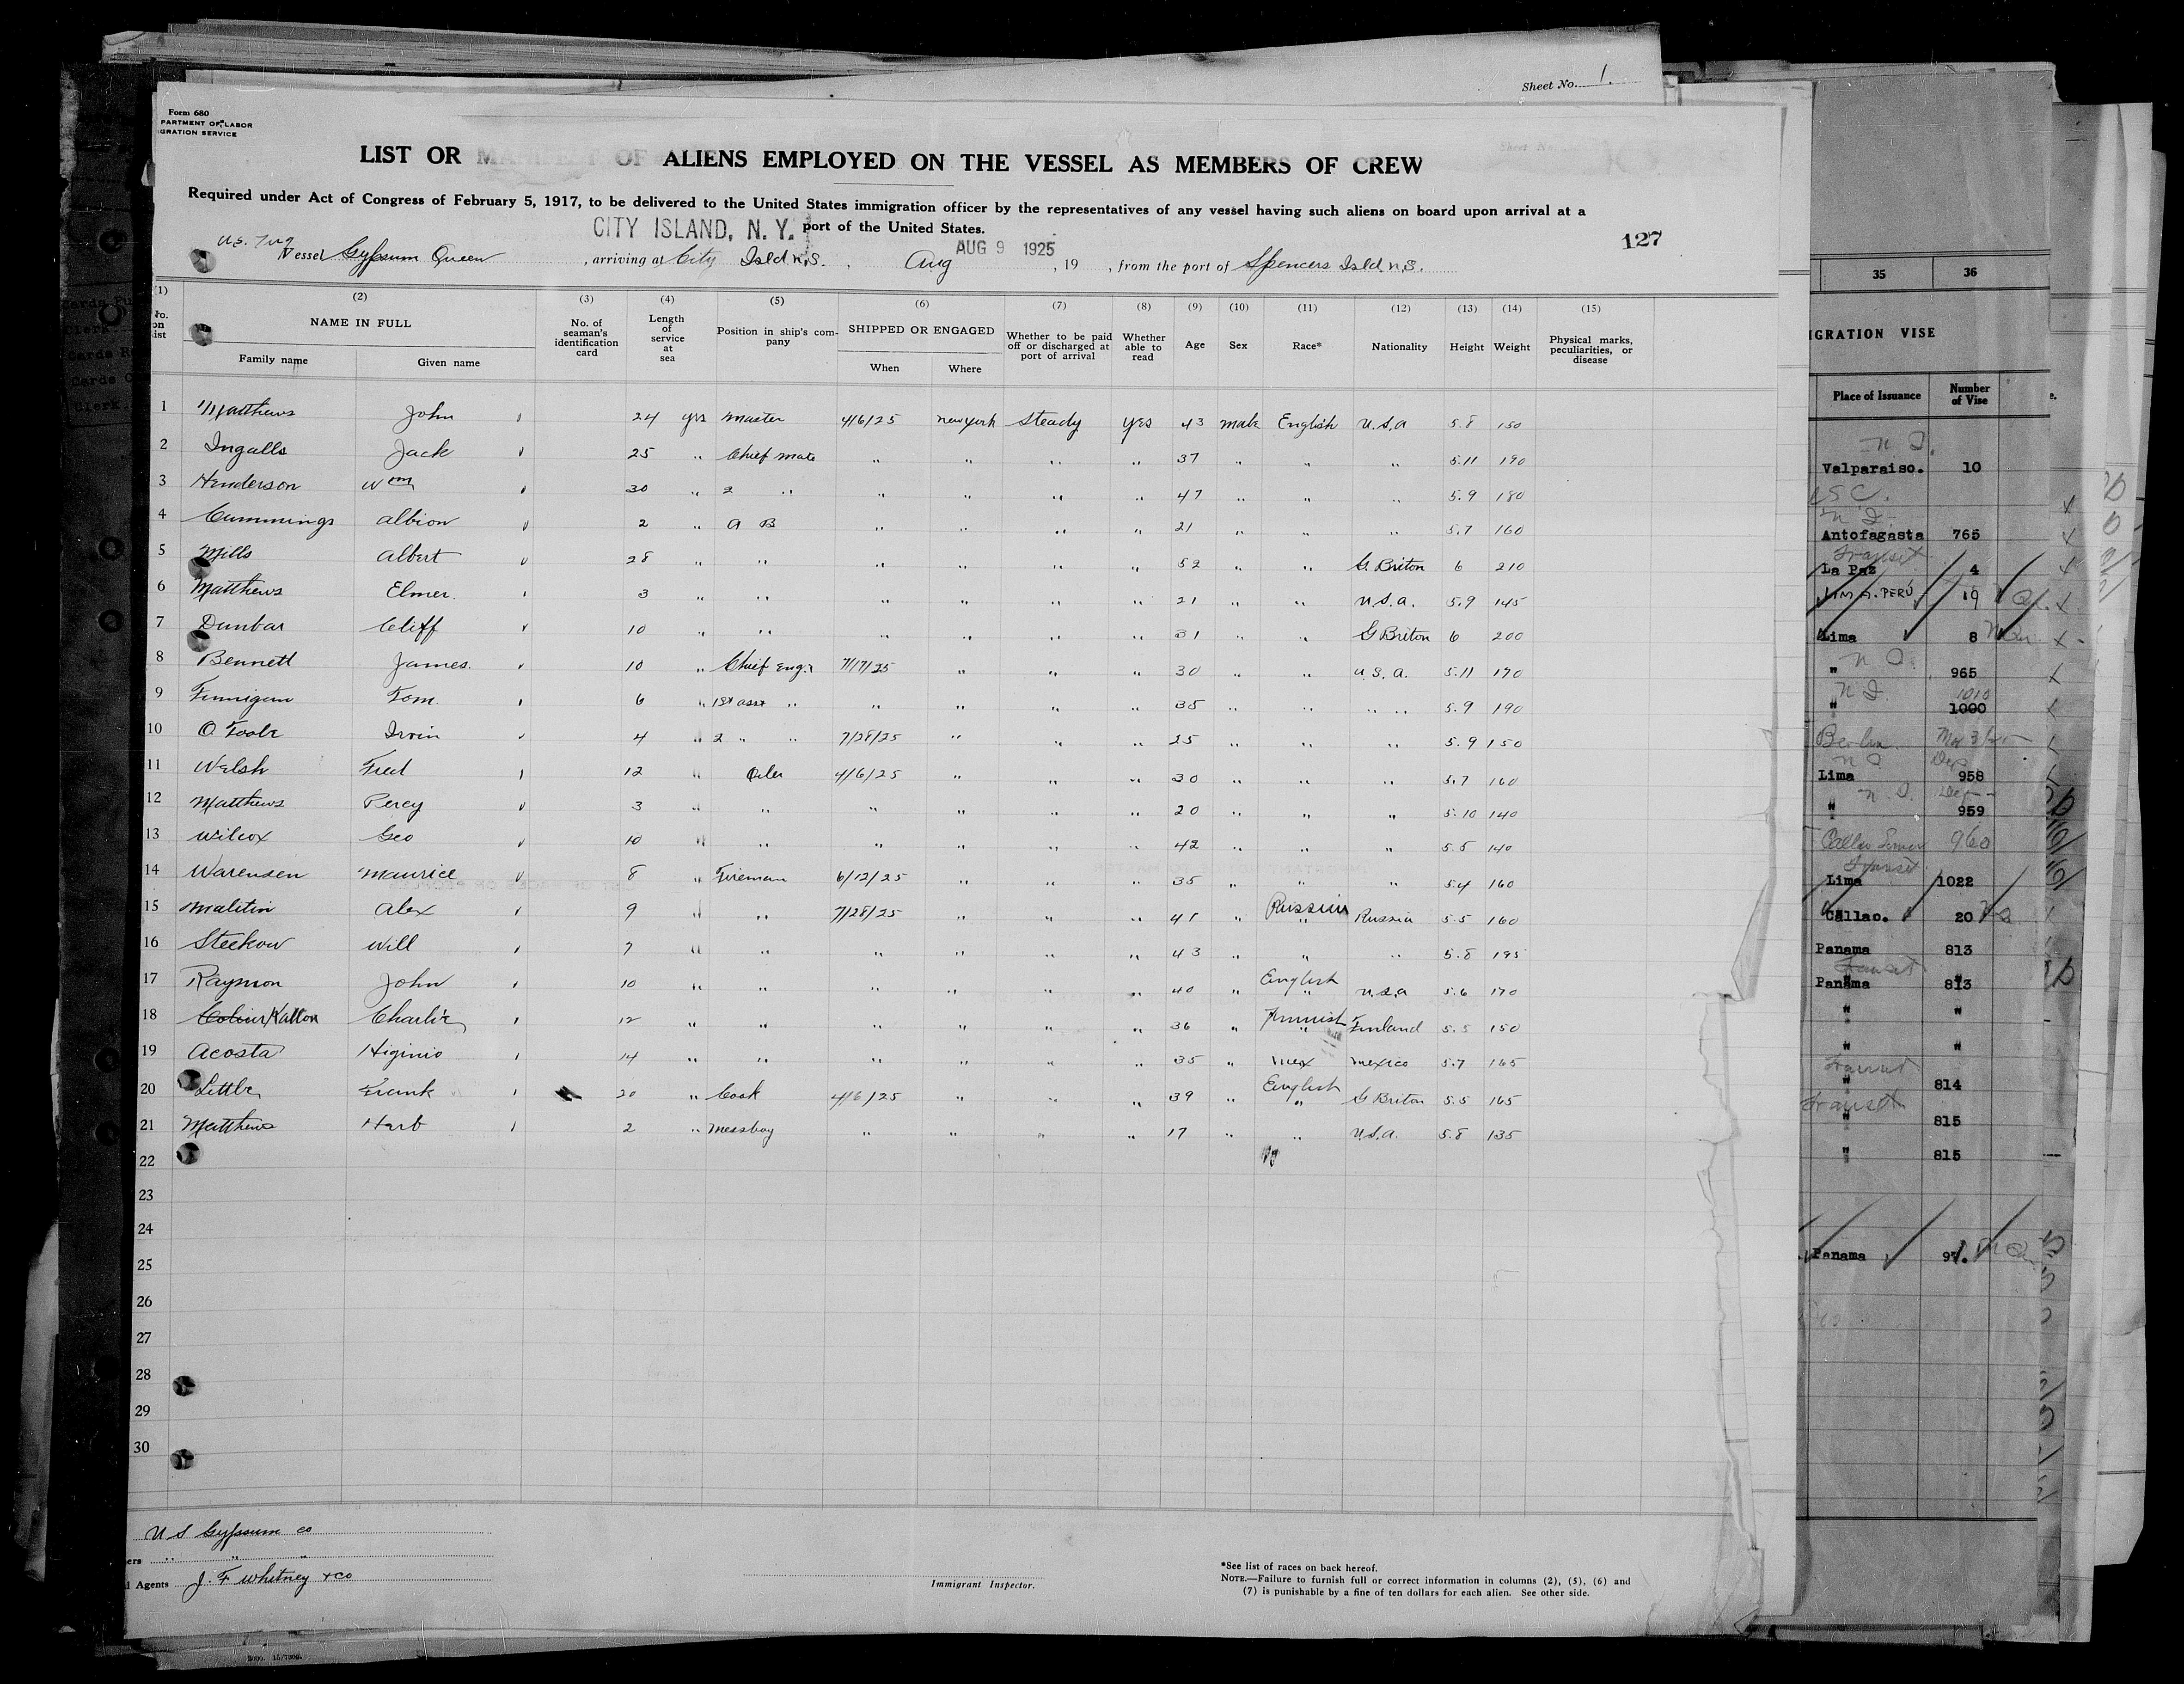 Sheet No. 1.
Form 680
PARTMENT OF LABOR
IGRATION SERVICE
LIST OR MANIFEST OF ALIENS EMPLOYED ON THE VESSEL AS MEMBERS OF CREW
Required under Act of Congress of February 5, 1917, to be delivered to the United States immigration officer by the representatives of any vessel having such aliens on board upon arrival at a
CITY ISLAND, N. Y. port of the United States.
127
U.S. Tug
Vessel Gypsum Queen, arriving at City Isld n,S. , Aug AUG 9 1925, 19 , from the port of Spencers Isld. n,S.
(1) (2) (3) (4) (5) (6) (7) (8) (9) (10) (11) (12) (13) (14) (15)
No. on list
NAME IN FULL
Family name Given name
No. of seaman's identification card
Length of service at sea
Position in ship's company
SHIPPED OR ENGAGED
When Where
Whether to be paid off or discharged at port of arrival
Whether able to read
Age Sex Race* Nationality Height Weight
Physical marks, peculiarities, or disease
1 Matthews John 24 yrs Master 4/6/25 new york Steady yes 43 male English U.S.A 5.8 150
2 Ingalls Jack 25 " Chief mate " " " " 37 " " " 5.11 190
3 Henderson Wm 30 " 2 " " " " " 47 " " " 5.9 180
4 Cummings Albion 2 " A B " " " " 21 " " " 5.7 160
5 Mills Albert 28 " " " " " " 52 " " G. Briton 6 210
6 Matthews Elmer. 3 " " " " " " 21 " " U.S.A. 5.9 145
7 Dunbar Cliff 10 " " " " " " 31 " " G Briton 6 200
8 Bennett James. 10 " Chief Eng.r 7/17/25 " " " 30 " " U.S.A. 5.11 170
9 Finnigan Tom. 6 " 1st asst " " " " " 35 " " " " 5.9 190
10 O.Toole Irvin 4 " 2 " " 7/28/25 " " " 25 " " " 5.9 150
11 Welsh Fred 12 " Oiler 4/6/25 " " " 30 " " " 5.7 160
12 Matthews Percy 3 " " " " " " 20 " " " 5.10 140
13 Wilcox Geo 10 " " " " " " 42 " " " 5.5 140
14 Warensen Maurice 8 " Fireman 6/12/25 " " " 35 " " " 5.4 160
15 Malitin Alex 9 " " 7/28/25 " " " 41 " Russian " Russia 5.5 160
16 Steekow Will 7 " " " " " " 43 " " " 5.8 195
17 Raymon John 10 " " " " " " 40 " English " U.S.A 5.6 170
18 Kallon Charlie 12 " " " " " " 36 " Finnish " Finland 5.5 150
19 Acosta Higinio 14 " " " " " " 35 " Mex Mexico 5.7 165
20 Little Frank 20 " Cook 4/6/25 " " " 39 " English " G Briton 5.5 165
21 Matthews Harb 2 " Messboy " " " " 17 " " U.S.A. 5.8 135
22
23
24
25
26
27
28
29
30
U S Gypsum co
ers " " "
l Agents J. F Whitney & co
Immigrant Inspector.
*See list of races on back hereof.
NOTE.—Failure to furnish full or correct information in columns (2), (5), (6) and
(7) is punishable by a fine of ten dollars for each alien. See other side.
35 36
IGRATION VISE
Place of Issuance Number of Vise
Valparaiso. 10
Antofagasta 765
Transit
La Paz 4
LIMA. PERÚ 19
Lima 8
" 965
1010
" 1000
Berlin
Lima 958
" 959
960
Transit
Lima 1022
Callao. 20
Panama 813
Transit
Panama 813
" "
" "
Transit
" 814
Transit
" 815
" 815
Panama